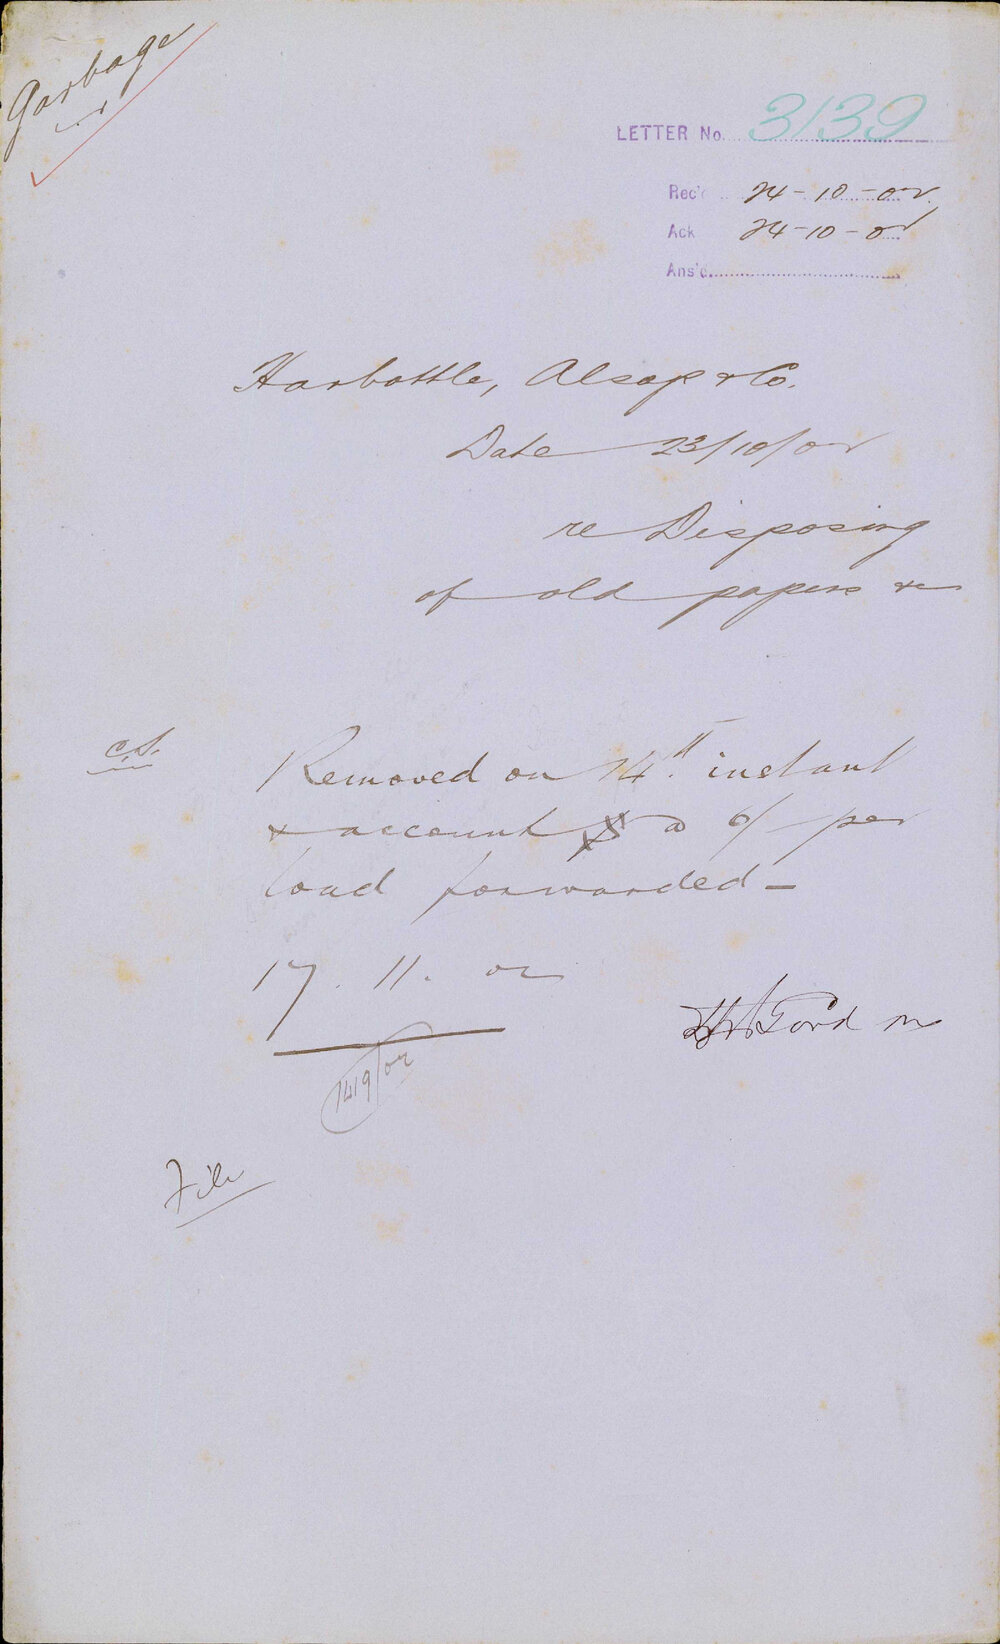 Garbage
LETTER No. 3139
Rec'd 24-10-02.
Ack 24-10-02
Ans'd
Harbottle, Alsop & Co.
Date 23/10/02
re Disposing
of old papers &c
C.S.
Removed on 14th. instant
& account @ 6/- per
load forwarded -
17. 11. 02
Gordon
1419/02
File